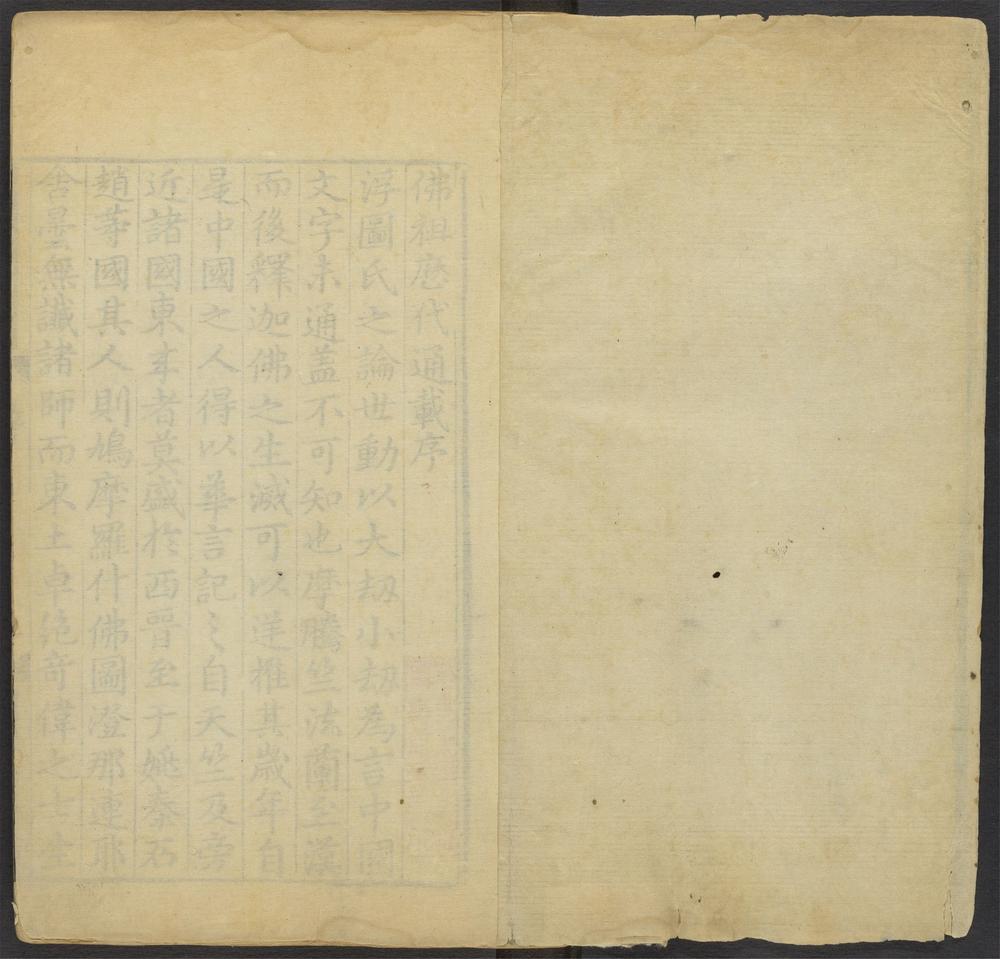 佛祖歷代通載序
浮圖氏之論世動以大劫小劫為言中國
文字未通盖不可知也摩騰竺法蘭至漢
而後釋迦佛之生滅可以逆推其歲年自
是中國之人得以華言記之自天竺及旁
近諸國東来者莫盛於西晋至于姚秦石
趙等國其人則鳩摩羅什佛圖澄那連耶
舍曇無讖諸師而東土卓絶竒偉之士生